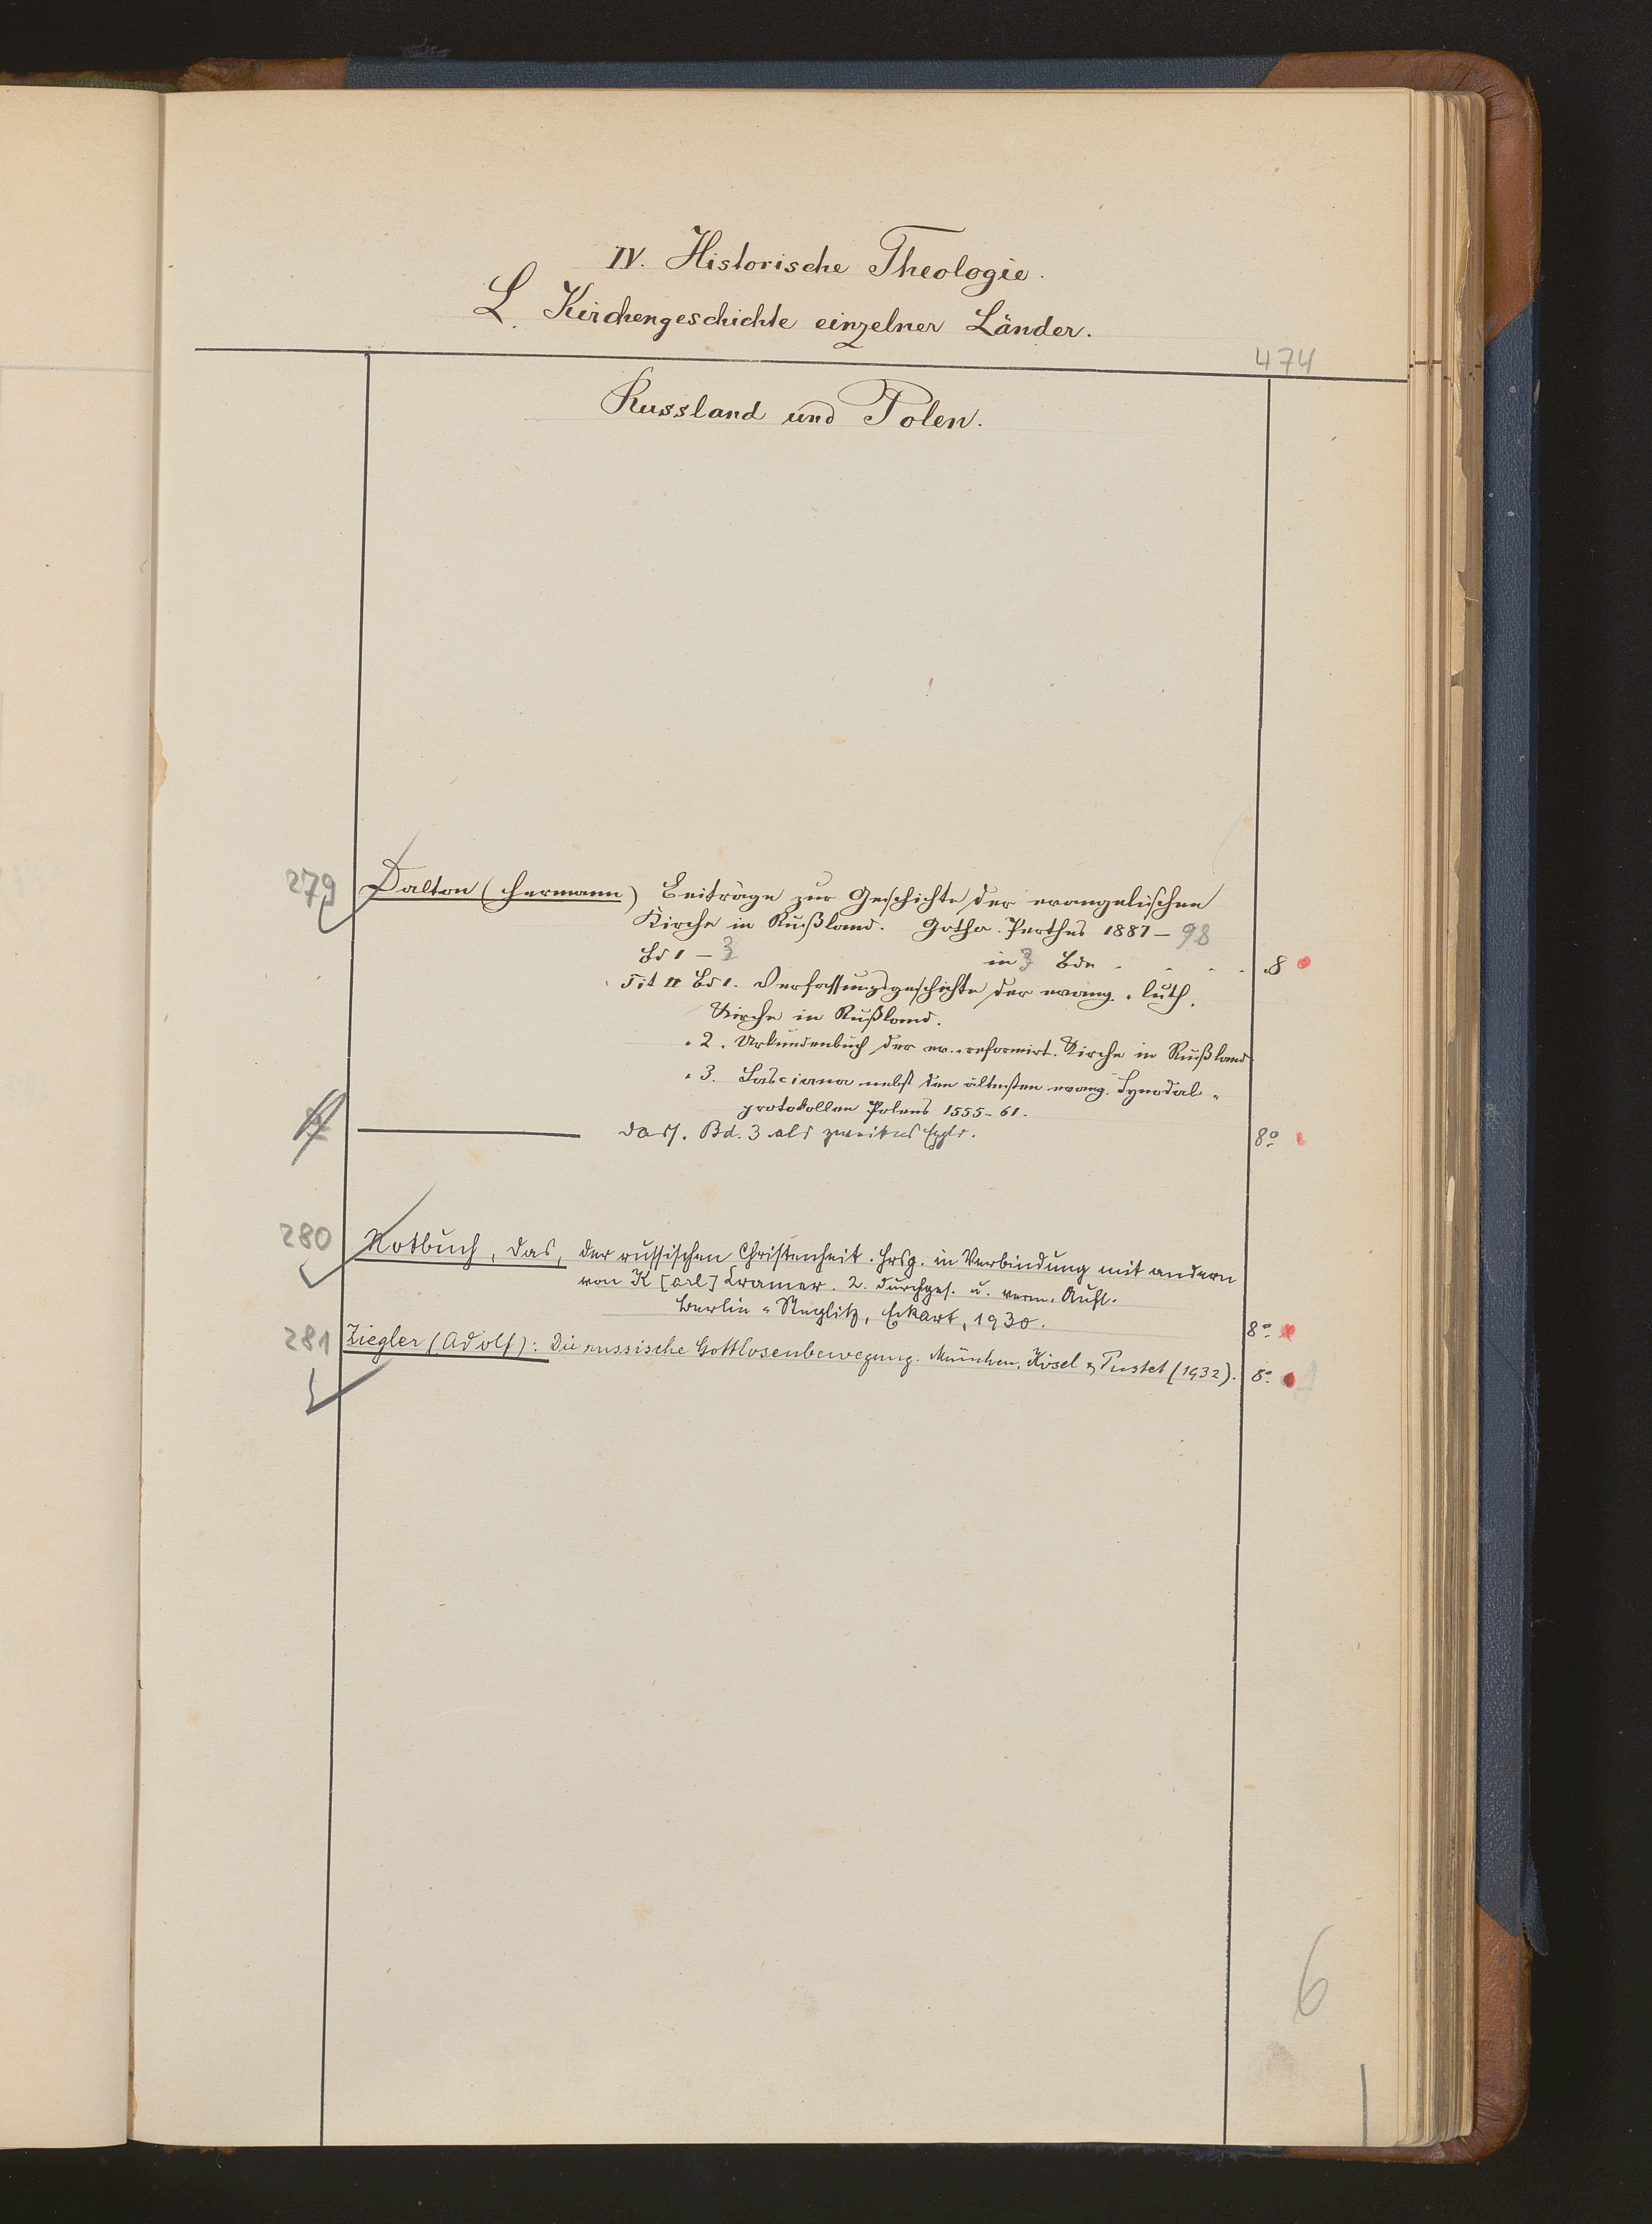 IV. Historische Theologie.
L. Kirchengeschichte einzelner Länder.
474
Russland und Polen.
279 Dalton (Hermann) Beiträge zur Geschichte der evangelischen
Kirche in Rußland. Gotha. Perthes 1887-98
Bd 1 - 3 in 3 Bde . . . . 8
Tit Bd 1. Verfassungsgeschichte der evang. luth.
Kirche in Rußland.
" 2. Urkundenbuch der ev.-reformirt. Kirche in Rußland
" 3. Lasciana nebst den ältesten evang. Synodal-
protokollen Polens 1555-61.
dass. Bd. 3 als zweites Explr. 8°
280 Notbuch, das, der russischen Christenheit. Hrsg. in Verbindung mit andern
von K[arl] Cramer. 2. durchges. u. verm. Aufl.
Berlin-Steglitz, Eckart, 1930. 8°
281 Ziegler (Adolf): Die russische Gottlosenbewegung. München, Kösel & Pustet (1932). 8°
6